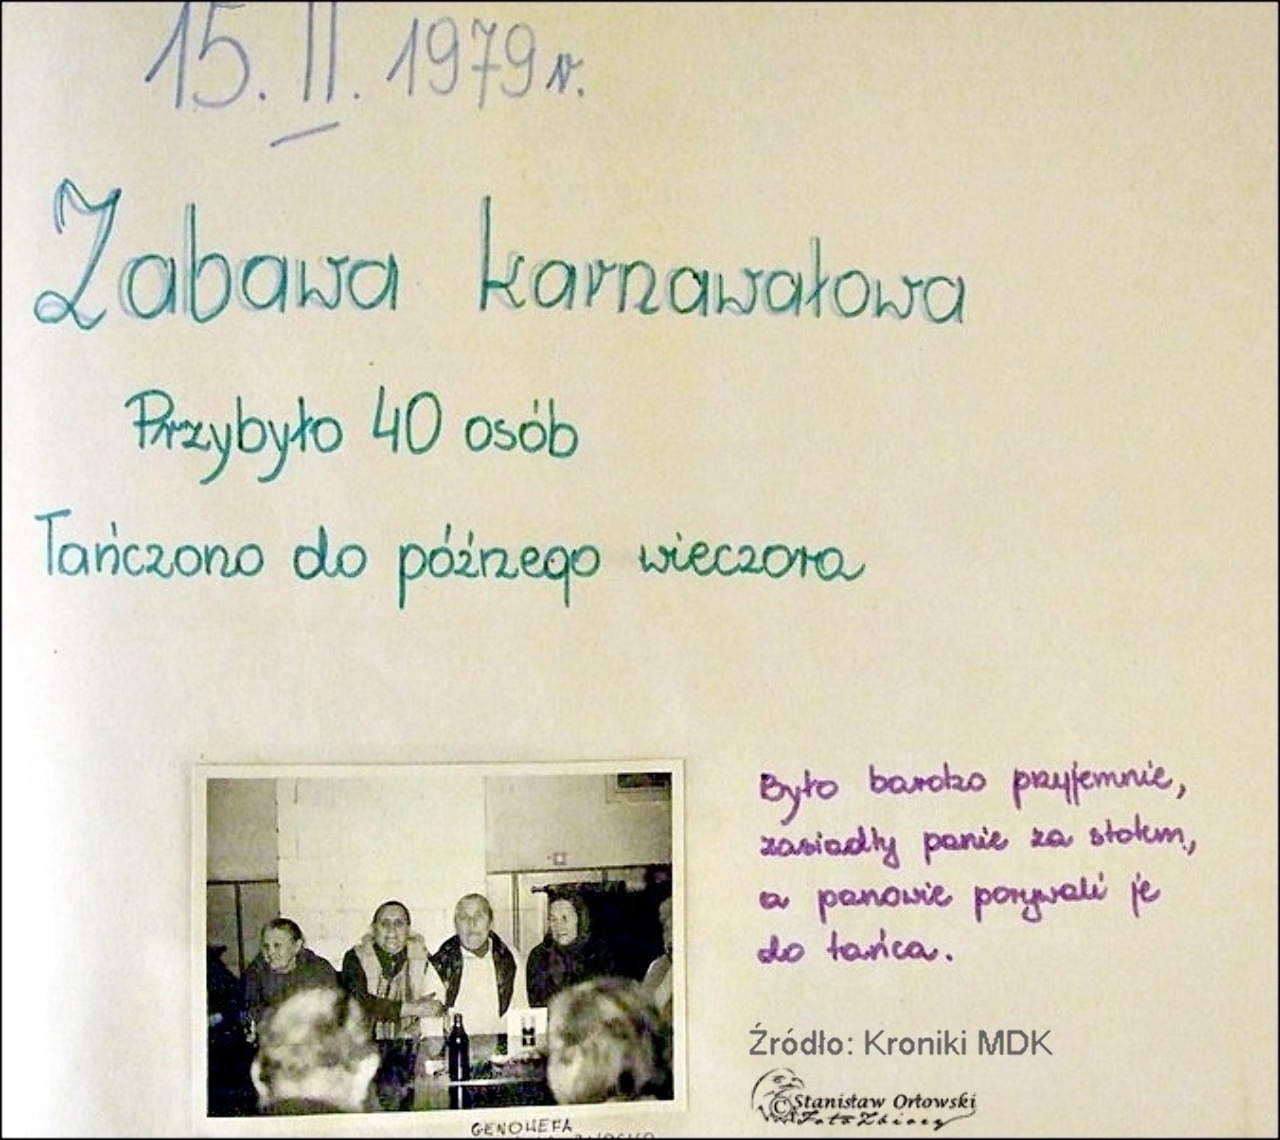 15. II. 1979 r.
Zabawa karnawałowa
Przybyło 40 osób
Tańczono do późnego wieczora
Było bardzo przyjemnie,
zasiadły panie za stołem,
a panowie porywali je
do tańca.
Źródło: Kroniki MDK
Stanisław Orłowski
Foto Zbiory
GENOWEFA